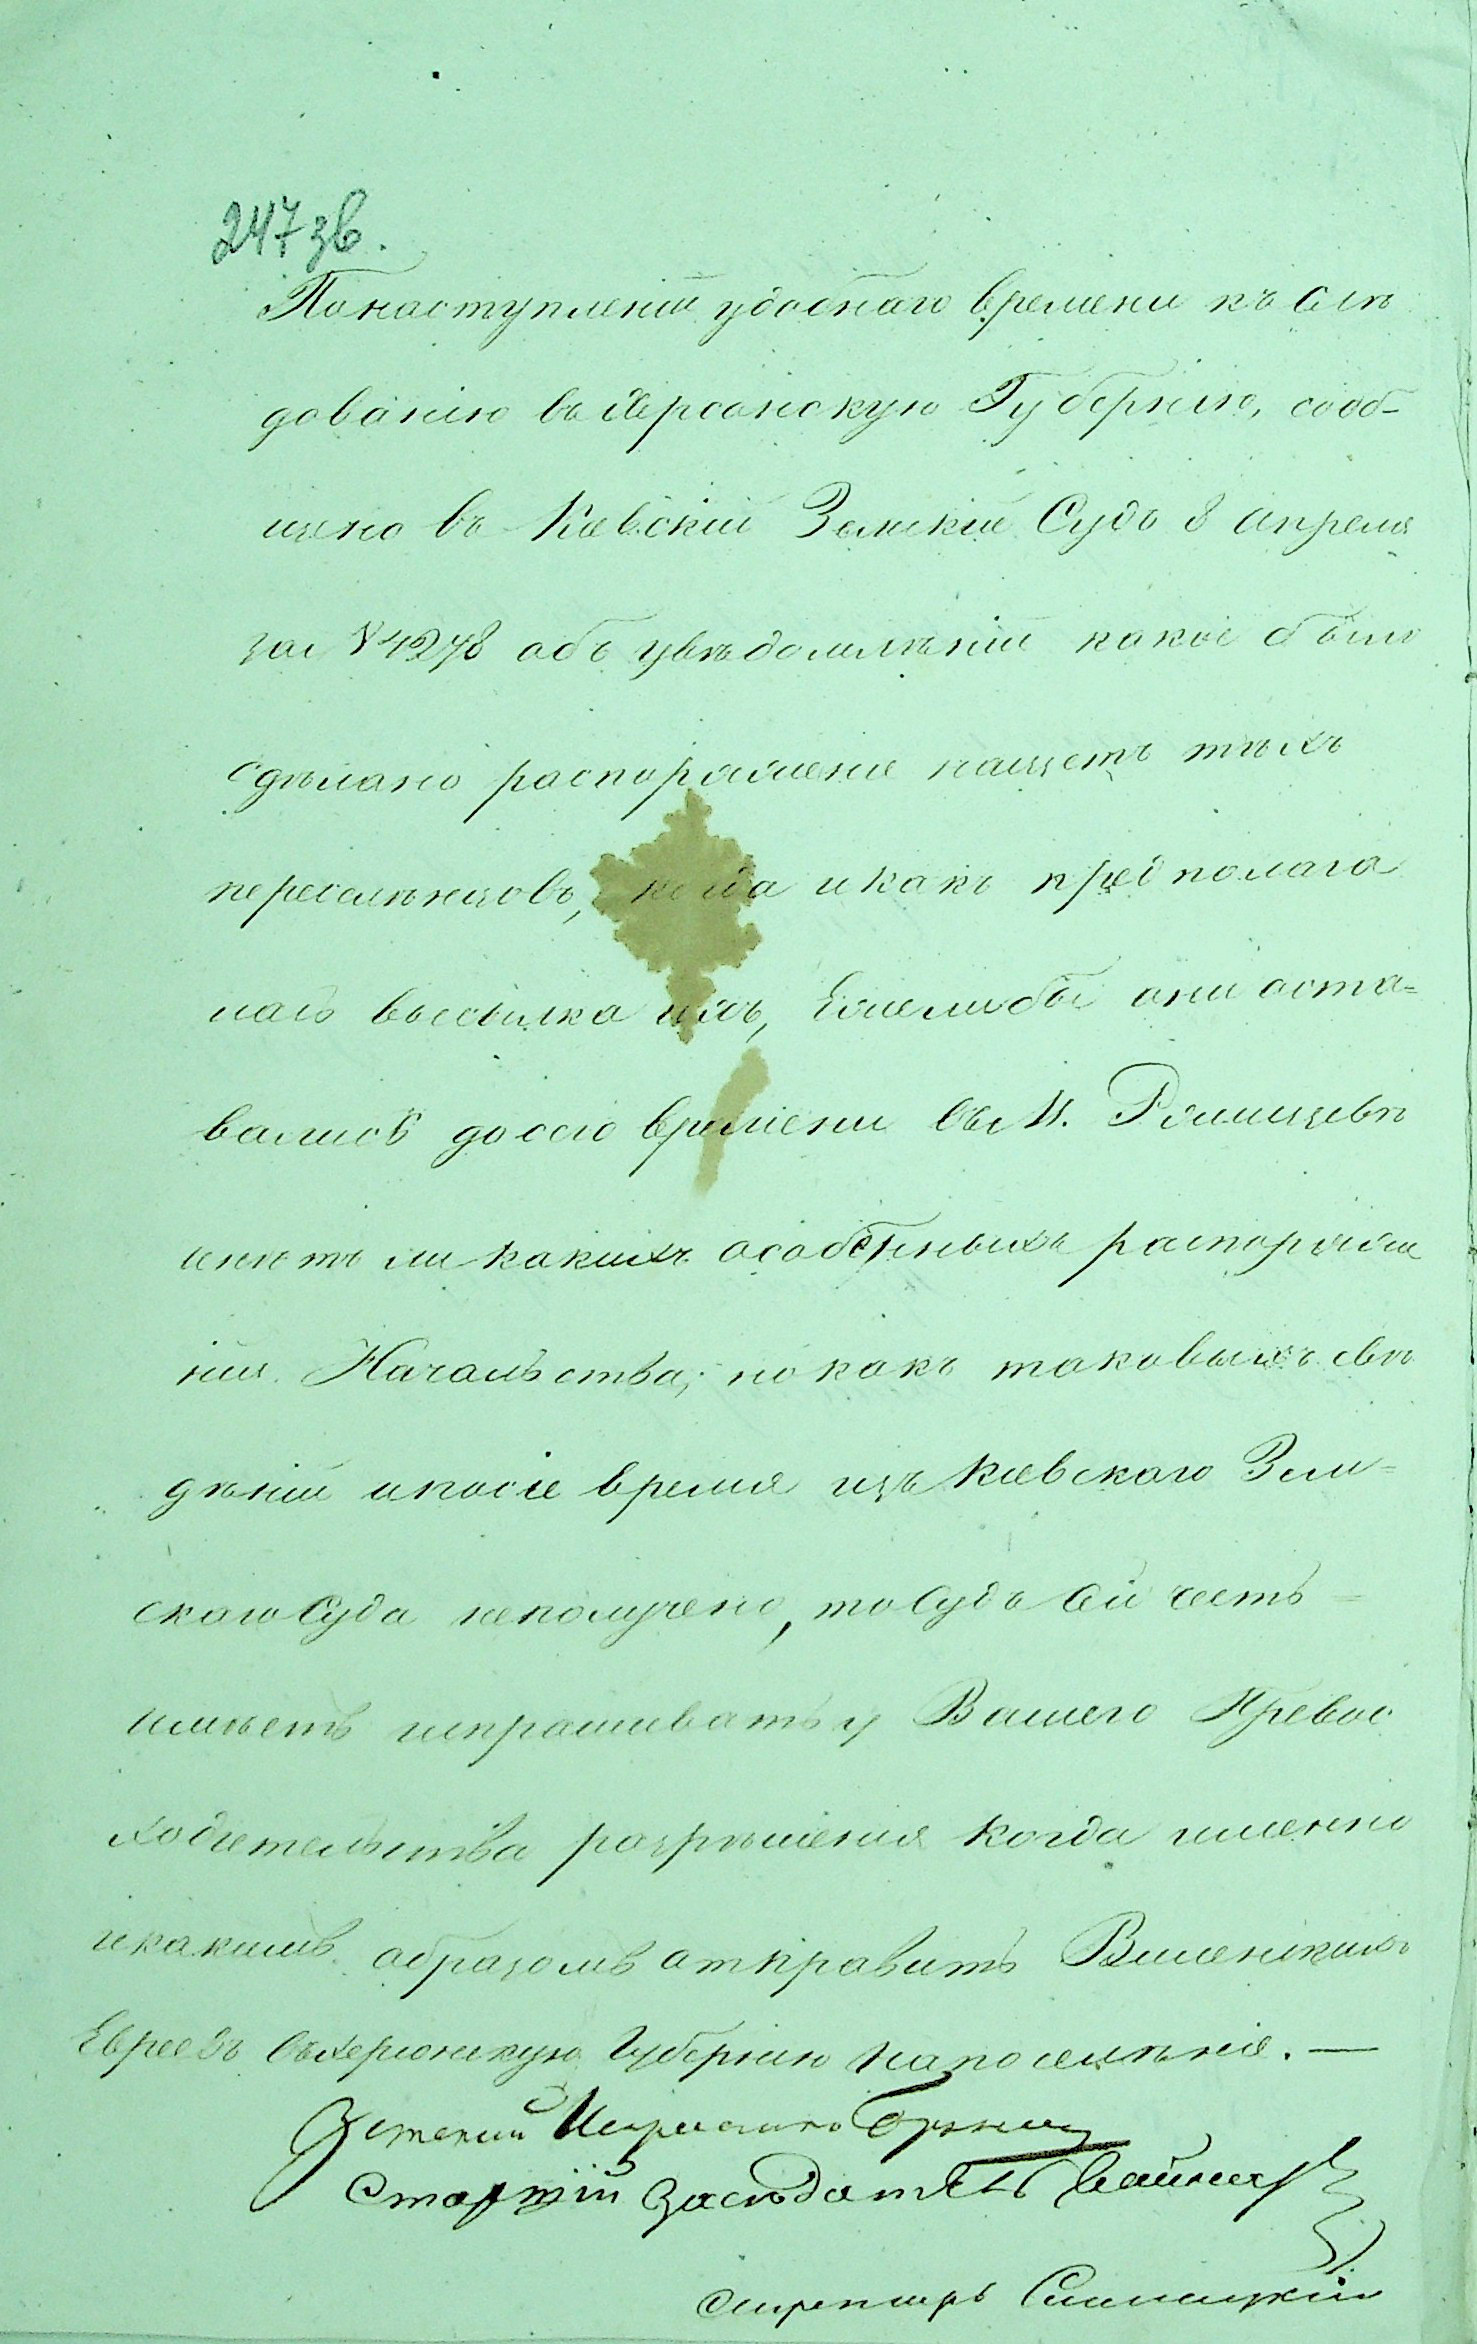 247 зв.
Понаступленій удобнаго времени къ слѣ
дованію въ Херсонскую Губернію, сооб-
щено въ Кіевскій Земскій Судъ 8 апреля
за № 4278 объ увѣдомлѣніи какое было
сдѣлано распоряженіе нащетъ тѣхъ
переселѣнцовъ, когда и какъ предполага
лась высылка ихъ, Ежелибы они оста=
вались до сего времени въ М. Ржищевѣ
инѣтъ ли какихъ особенныхъ распоряже
ній Начальства; но какъ таковыхъ свѣ
дѣній ипосіе время изъ Кіевскаго Зем=
скаго Суда неполучено, то Судъ Сей честь =
имѣетъ испрашивать у Вашего Превос
ходительства разрѣшенія когда именно
икакимъ образомъ отправить Виленскихъ
Евреевъ въ Херсонскую Губернію напоселѣніе. —
Земскій Исправникъ
Старшій Засѣдатель
Секретарь